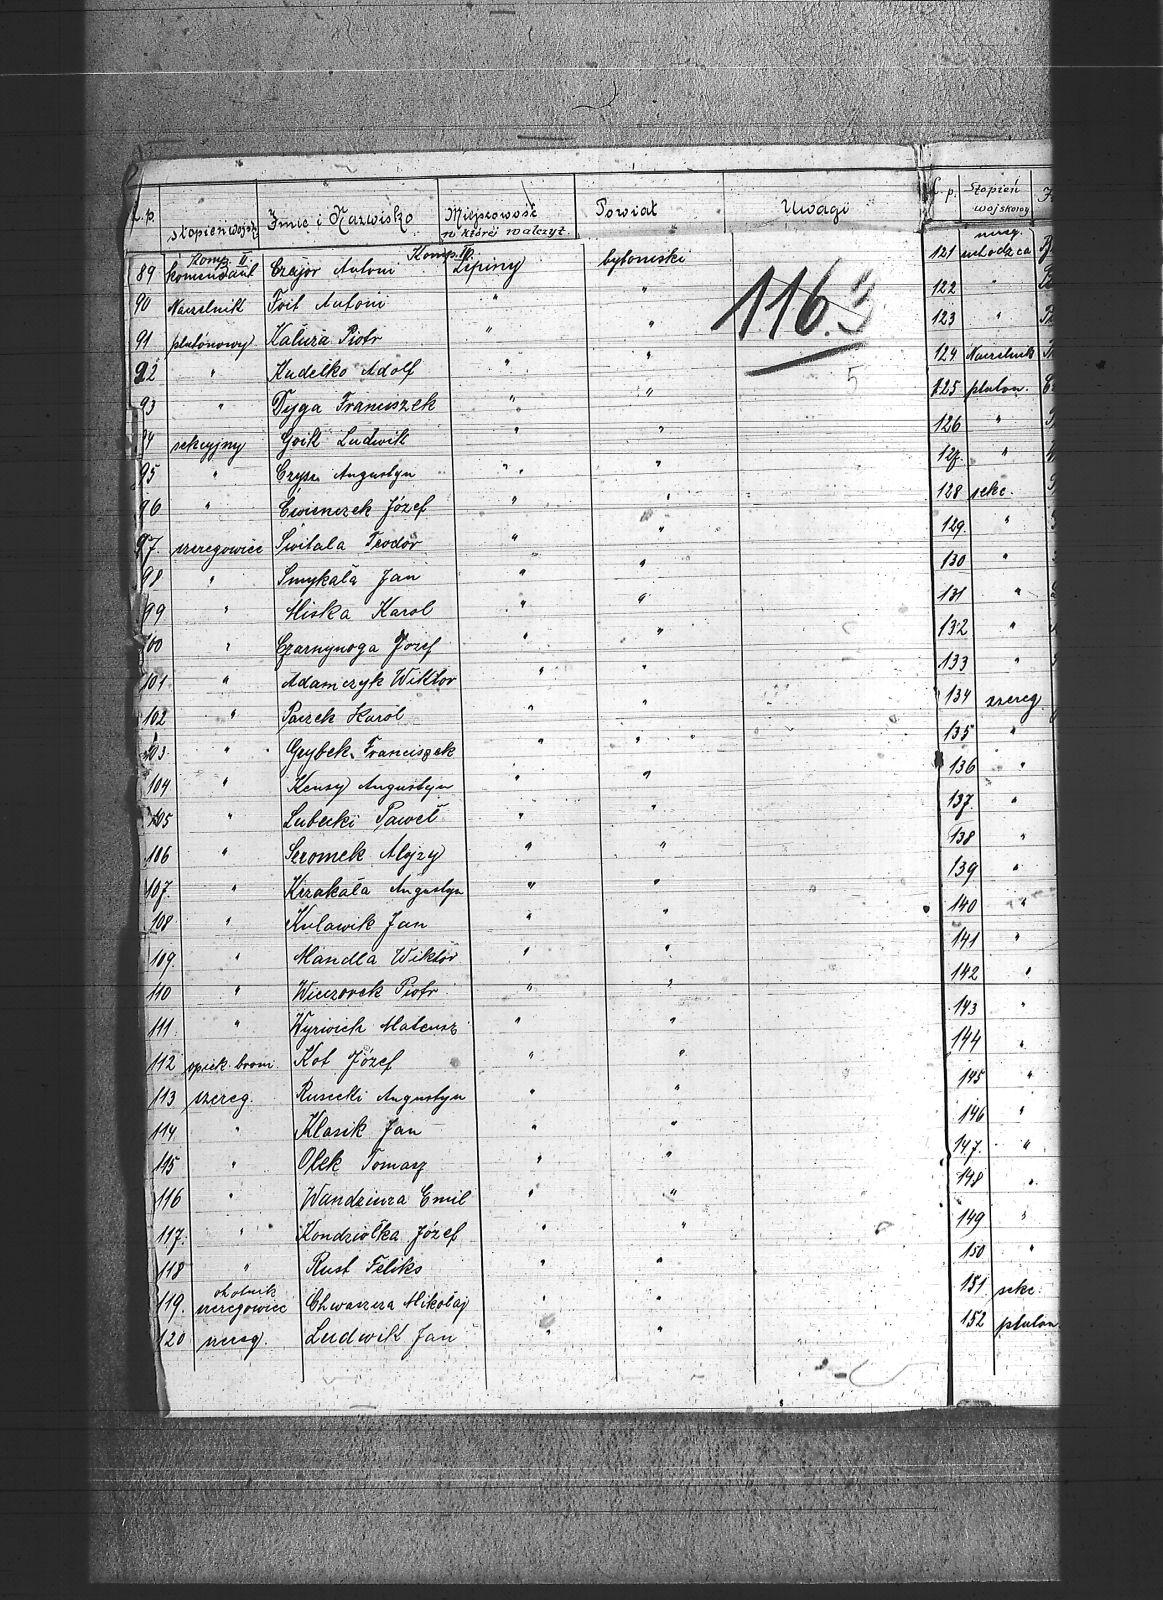 L. p. stopień wojsk. Imię i Nazwisko Miejscowość w której walczył Powiat Uwagi
Komp. II. Komp. II.
89 komendant Czajor Antoni Lipiny bytomski
116
5
90 Naczelnik Foit Antoni " "
91 plutonowy Kaluża Piotr " "
92 " Kudelko Adolf " "
93 " Dyga Franciszek " "
94 sekcyjny Goik Ludwik " "
95 " Augustyn " "
96 " Józef " "
97. szeregowiec Świtala Teodor " "
98 " Smykała Jan " "
99 " Miska Karol " "
100 " Czarnynoga Józef " "
101 " Adamczyk Wiktor " "
102 " Paczek Karol " "
103. " Grybek Franciszek " "
104 " Kensy Augustyn " "
105 " Lubecki Paweł " "
106 " Sromek Alojzy " "
107. " Krzakała Augustyn " "
108 " Kulawik Jan " "
109. " Mandla Wiktor " "
110 " Wieczorek Piotr " "
111 " Wyrwich Mateusz " "
112 opiek. broni Kot Józef " "
113 szereg. Rusecki Augustyn " "
114 " Klasik Jan " "
115 " Olek Tomasz " "
116 " Wandziura Emil " "
117. " Kondziolka Józef " "
118 " Rust Feliks " "
119. szeregowiec Chwaszcza Mikołaj " "
120 szereg. Ludwik Jan " "
L. p. Stopień wojskowy
121 młodzca
122 "
123 "
124 Naczelnik
125 pluton.
126 "
127. "
128 sekc.
129 "
130 "
131 "
132 "
133 "
134 szereg
135 "
136 "
137. "
138 "
139 "
140 "
141 "
142 "
143 "
144 "
145 "
146 "
147. "
148 "
149 "
150 "
151 sekc.
152 pluton